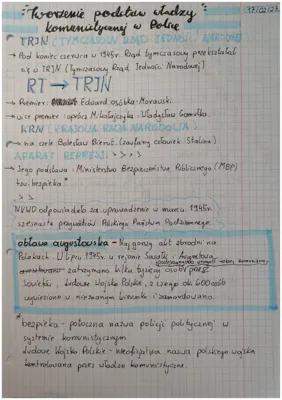 Tworzenie podstaw władzy
komunistycznej w Polsce
TRJN (TYMCZASOWY RZĄD JEDNOŚCI NARODOWEJ)
→ Pod koniec czerwca w 1945r. Rząd tymczasowy przekształcał
się w TRJN (Tymczasowy Rząd Jedności Narodowej)
RT → TRJN
→ Premier: Edward Osóbka-Morawski.
→ vice premier: oprócz Mikołajczyka: Władysław Gomułka.
KRN (KRAJOWA RADA NARODOWA)
→ na czele Bolesław Bierut. (zaufany człowiek Stalina)
APARAT REPRESJI > > > >
→ Jego podstawa: Ministerstwo Bezpieczeństwa Publicznego (MBP)
tzw. bezpieka *
> >
NKWD odpowiedzialo za uprowadzenie w marcu 1945r.
szesnastu przywódców Polskiego Państwa Podziemnego.
obława augustowska - największy akt zbrodni na
Polakach. W lipcu 1945r. w rejonie Suwałk i Augustowa
zatrzymano kilka tysięcy osób przez
Sowietów i Ludowe Wojsko Polskie, z czego ok 600 osób
wywieziono w nieznanym kierunku i zamordowano.
* bezpieka - potoczna nazwa policji politycznej w
systemie komunistycznym
Ludowe Wojsko Polskie - nieoficjalna nazwa polskiego wojska
kontrolowana przez władze komunistyczne.